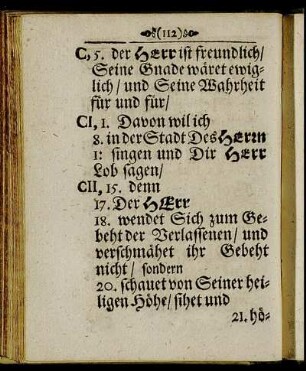 (112)
C, 5. der HErr ist freundlich/
Seine Gnade wäret ewig-
lich/ und Seine Wahrheit
für und für/
CI, 1. Davon wil ich
8. in der Stadt Des HErrn
1: singen und Dir HErr
Lob sagen/
CII, 15. denn
17. Der HErr
18. wendet Sich zum Ge-
beht der Verlassenen/ und
verschmähet ihr Gebeht
nicht/ sondern
20. schauet von Seiner hei-
ligen Höhe/ sihet und
21. hö-